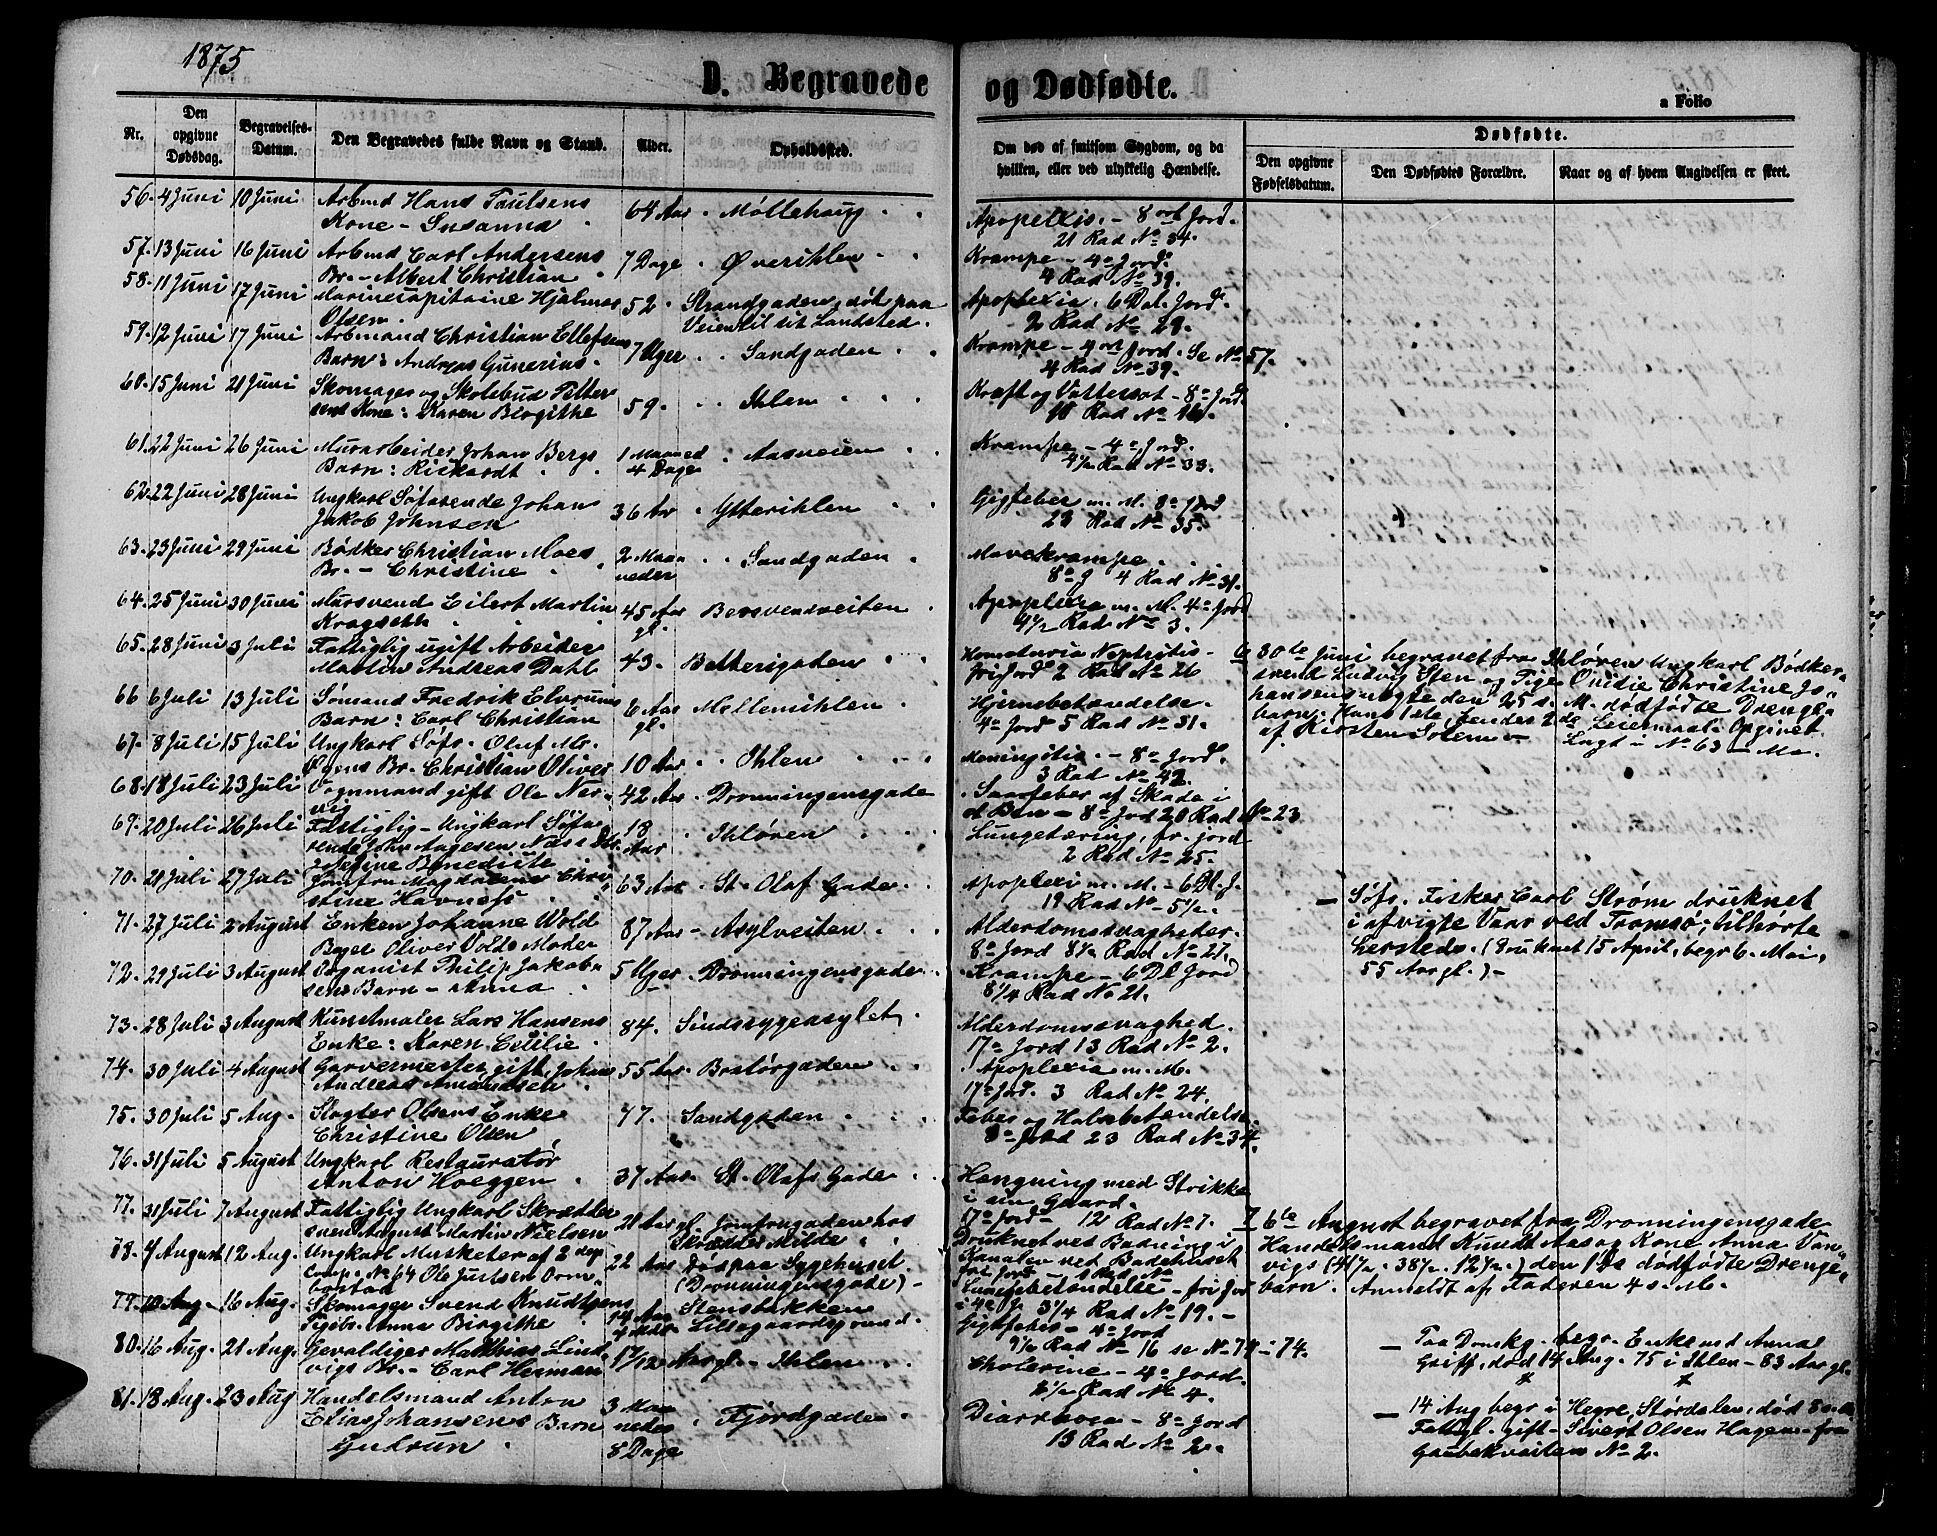 1875
D. Begravede og Dødfødte.
a Folio
Nr.
Den opgivne Dødsdag.
Begravelses-Datum.
Den Begravedes fulde Navn og Stand.
Alder.
Opholdssted.
Om død af smitsom Sygdom, og da hvilken, eller ved ulykkelig Hændelse.
Dødfødte.
Den opgivne Fødselsdatum.
Den Dødfødtes Forældre.
Naar og af hvem Angivelsen er skeet.
56. 4 Juni 10 Juni Arbmd Hans Paulsens 64 Aar Møllehaug Apoplexis. - 8 ort Jord.
Kone - Susanna 21 Rad No 34.
57. 13 Juni 16 Juni Arbmd Carl Andersens 7 Dage Øverihlen Krampe - 4 a Jord.
Br. - Albert Christian 4 Rad No 39.
58. 11 Juni 17 Juni Marinecapitaine Hjalmar 52. Strandgaden, død paa Apoplexia. 6 Dal. Jord.
Olsen. Veien til sit Landsted. 2 Rad No 29.
59. 12 Juni 17 Juni Arbmand Christian Ellefsens 7 Uger Sandgaden Krampe - 4 ort Jord. Se No 57.
Barn: Andreas Gunerius. 4 Rad No 39.
60. 15 Juni 21 Juni Skomager og Skolebud Petter 59. Ihlen Kræft og Vattersot - 8 a Jord.
sens Kone: Karen Birgithe Rad No
61. 22 Juni 26 Juni Murarbeider Johan Bergs 1 Maaned Aasveien Krampe - 4 a Jord.
Barn: Rickardt 4 Dage 4½ Rad No 33.
62. 22 Juni 28 Juni Ungkarl Søfarende Johan 36 Aar Ytterihlen Gigfeber m. M. 8 a Jord
Jakob Johnsen 23 Rad No 35.
63. 23 Juni 29 Juni Bødker Christian Moes 2 Maa- Sandgaden Mavekrampe
Br. - Christine neder 8 a J 4 Rad No 31.
64. 25 Juni 30 Juni Mursvend Eilert Martin 45 Aar Bersvendveiten Apoplexia m. M. 4 a Jord
Kragseth gl. 4½ Rad No 3.
65. 28 Juni 3 Juli Fattiglig ugift Arbeider 43. Bakkerigaden
Martin Andreas Dahl frijord 2 Rad No 26
6 30te Juni begravet fra Ihløren Ungkarl Bødker-
svend Ludvig Sten og Pige Ovidie Christine Jo-
hansens ægte den 25 s. M. dødfødte Drenge-
barn. Hans 1ste, hendes 2de Leiermaal. Opgivet
af Kirsten Solem - Lagt i No 63 - Ma.
66 6 Juli 13 Juli Sømand Fredrik Elvrums 6 Aar Mellemihlen Hjernebetændelse.
Barn: Carl Christian gl. 4 a Jord 5 Rad No 31.
67. 8 Juli 15 Juli Ungkarl Søfr. Oluf Mr. 10 Aar Ihlen Meningitis. - 8 a Jord.
Br. Christian Oliver 3 Rad No 42.
68. 18 Juli 23 Juli Vognmand gift Ole Nær- 42 Aar Dronningensgade Saarfeber af Skade i
vig et Ben - 8 a Jord 28 Rad No 23
69. 20 Juli 26 Juli Fattiglig - Ungkarl Søfa- 18 Aar Ihløren Lungetæring, fr. jord
rende John Aagesen Næss Dtr. 2 Rad No 25.
Josefine Benedicte
70. 21 Juli 27 Juli Jomfru Magdalene Chri- 63 Aar St. Olaf Gade. Apoplexi m. M. - 6 Dl. J.
stine Havnefs 19 Rad No 5½.
- Søfr. Fisker Carl Strøm druknet
i afvigte Vaar ved Tromsø; tilhørte
Herstede. (Druknet 15 April, begr 6. Mai,
55 Aar gl.) -
71. 27 Juli 2 August Enken Johanne Wold 87 Aar Asylveiten Alderdomssvagheder.
Bager Oliver Volds Moder 8 a Jord 8½ Rad No 27.
72. 29 Juli 3 August Organist Philip Jakob- 5 Uger Dronningensgade Krampe - 6 Dl Jord
sens Barn - Anna 8¼ Rad No 21.
73. 28 Juli 3 August Kunstmaler Lars Hansens 84. Sindssygeasylet Alderdomssvaghed.
Enke: Karen Cecilie 17 a Jord 13 Rad No 2.
74. 30 Juli 4 August Garvermester, gift, Johan 55 Aar Bratørgaden Apoplexia m. M.
Andreas Amundsen 17 a Jord. 3 Rad No 24.
75. 30 Juli 5 Aug. Slagter Olsens Enke 77. Sandgaden Feber og Halsbetændelse
Christine Olsen 8 a Jord 23 Rad No 34.
76. 31 Juli 5 August Ungkarl Restauratør 37 Aar St. Olafs Gade Hængning med Strikke
Anton Hoeggen i sin Gaard.
17 a Jord - 12 Rad No 7.
77. 31 Juli 7 August Fattiglig Ungkarl Skrædder 21 Aar gl. Jomfrugaden hos Druknet ved Badning i
svend August Martin Nielsen Skrædder Milde Kanalen ved Badehuset
7 6te August begravet fra Dronningensgade
Handelsmand Knudt Aas og Kone Anna Van-
vigs (41½. - 38½. - 12½.) den 1 ds dødfødte Drenge-
barn. Anmeldt af Faderen 4 s. M.
78. 7 August 12 Aug. Ungkarl Musketer af 2 dep 22 Aar Død paa Sygehuset Lungebetændelse - fri Jord
Comp. No 64 Ole Justsen (Dronningensgade) -
79. 10 Aug. 16 Aug. Skomager Svend Knudtzens 14 Aar Stensbakken 4 a J. 3¼ Rad No 19. -
Tjpbr. Anna Birgithe 4 Mdr. Lillegaardsgrund. Gigtfeber - 4 a Jord
9½ Rad No 16 se No 74 - 74.
80. 16 Aug. 21 Aug. Gevaldiger Mathias Lind- 1 7/12 Aar gl. - Ihlen Cholerine - 4 a Jord.
vigs Br. - Carl Herman 8½ Rad No 4.
- Paa Domkg. begr. Enkemd Anna
Griff, død 14 Aug. 75 i Ihlen - 83 Aar gl.
81. 18 Aug. 23 Aug Handelsmand Anton 3 Maa- Fjordgaden Diarrhoea - 8 a Jord
Elias Johansens Barn neder 13 Rad No 2.
Gudrun 8 Dage
- 14 Aug begr i Hegre, Størdalen, død
Fattgl. gift - Sivert Olsen Hagen - fra
Gaubekveiten No 2.